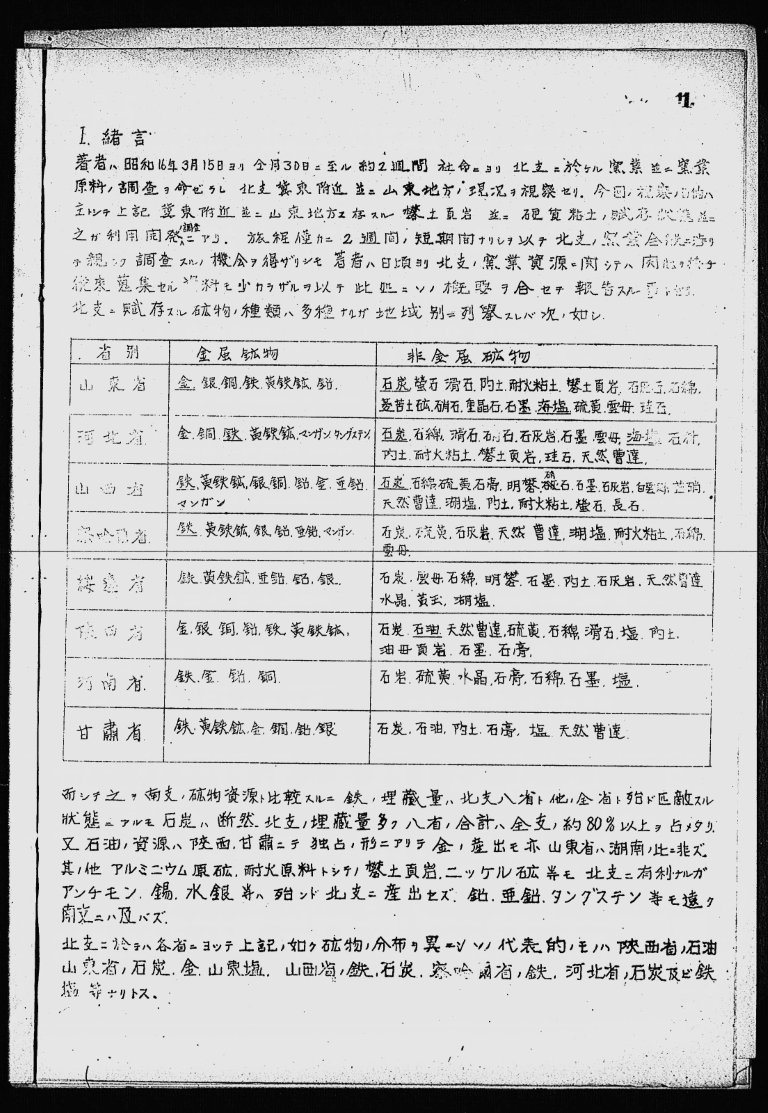 11.
I. 緒言
著者ハ昭和16年3月15日ヨリ 仝月30日ニ至ル 約2週間 社命ニヨリ 北支ニ於ケル 窯業並ニ窯業
原料ノ調査ヲ命ゼラレ 北支冀東附近並ニ山東地方ノ現況ヲ視察セリ. 今回ノ視察ノ
主トシテ上記 冀東附近並ニ山東地方ニ存スル 礬土頁岩 並ニ 硬質粘土ノ賦存状態並ニ
之が利用開発調査ニアリ. 旅程僅カニ2週間ノ短期間ナリシヲ以テ 北支ノ窯業全般ニ渉リ
テ親シク調査スルノ機会ヲ得ザリシモ 著者ハ日頃ヨリ北支ノ窯業資源ニ関シテハ
従来蒐集セル資料モ少カラザルヲ以テ此処ニソノ概要ヲ合セテ報告スル
北支ニ賦存スル鉱物ノ種類ハ多種ナルガ地域別ニ列挙スレバ次ノ如シ.
省別 金属鉱物 非金属鉱物
山東省 金.銀.銅.鉄.黄鉄鉱.鉛. 石炭.螢石.滑石.陶土.耐火粘土.礬土頁岩.石綿.
菱苦土砿.硝石.重晶石.石墨.海塩.硫黄.雲母.珪石.
河北省 金.銅.鉄.黄鉄鉱.マンガン.タングステン 石炭.石綿.滑石.石灰岩.石墨.雲母.海塩.
陶土.耐火粘土.礬土頁岩.珪石.天然曹達.
山西省 鉄.黄鉄鉱.銀.銅.鉛.金.亜鉛.
マンガン 石炭.石綿.硫黄.石膏.明礬.硝石.石墨.石灰岩.
天然曹達.湖塩.陶土.耐火粘土.螢石.長石.
察哈爾省 鉄.黄鉄鉱.銀.鉛.亜鉛.マンガン. 石炭.硫黄.石灰岩.天然曹達.湖塩.耐火粘土.石綿.
雲母.
綏遠省 鉄.黄鉄鉱.亜鉛.鉛.銀. 石炭.雲母.石綿.明礬.石墨.陶土.石灰岩.天然曹達
水晶.黄玉.湖塩.
陝西省 金.銀.銅.鉛.鉄.黄鉄鉱. 石炭.石油.天然曹達.硫黄.石綿.滑石.塩.陶土.
油母頁岩.石墨.石膏.
河南省 鉄.金.鉛.銅. 石岩.硫黄.水晶.石膏.石綿.石墨.塩.
甘肅省 鉄.黄鉄鉱.金.銅.鉛.銀 石炭.石油.陶土.石膏.塩.天然曹達.
而シテ之ヲ南支ノ砿物資源ト比較スルニ鉄ノ埋蔵量ハ北支八省ト他ノ全省ト殆ド匹敵スル
状態ニアルモ石炭ハ断然北支ノ埋蔵量多ク八省ノ合計ハ全支ノ約80%以上ヲ占メタリ
又石油ノ資源ハ陝西.甘肅ニテ独占ノ形ニアリテ金ノ産出モ亦山東省ハ湖南ノ比ニ非ズ
其ノ他アルミニウム原砿.耐火原料トシテノ礬土頁岩.ニッケル砿等モ北支ニ有利ナルガ
アンチモン.錫.水銀等ハ殆ンド北支ニ産出セズ.鉛.亜鉛.タングステン等モ遠ク
南京ニハ及バズ.
北支ニ於テハ各省ニヨッテ上記ノ如ク砿物ノ分布ヲ異ニシソノ代表的ノモノハ陝西省ノ石油
山東省ノ石炭.金.山東塩. 山西省ノ鉄.石炭.察哈爾省ノ鉄.河北省ノ石炭及ビ鉄
塩等ナリトス.